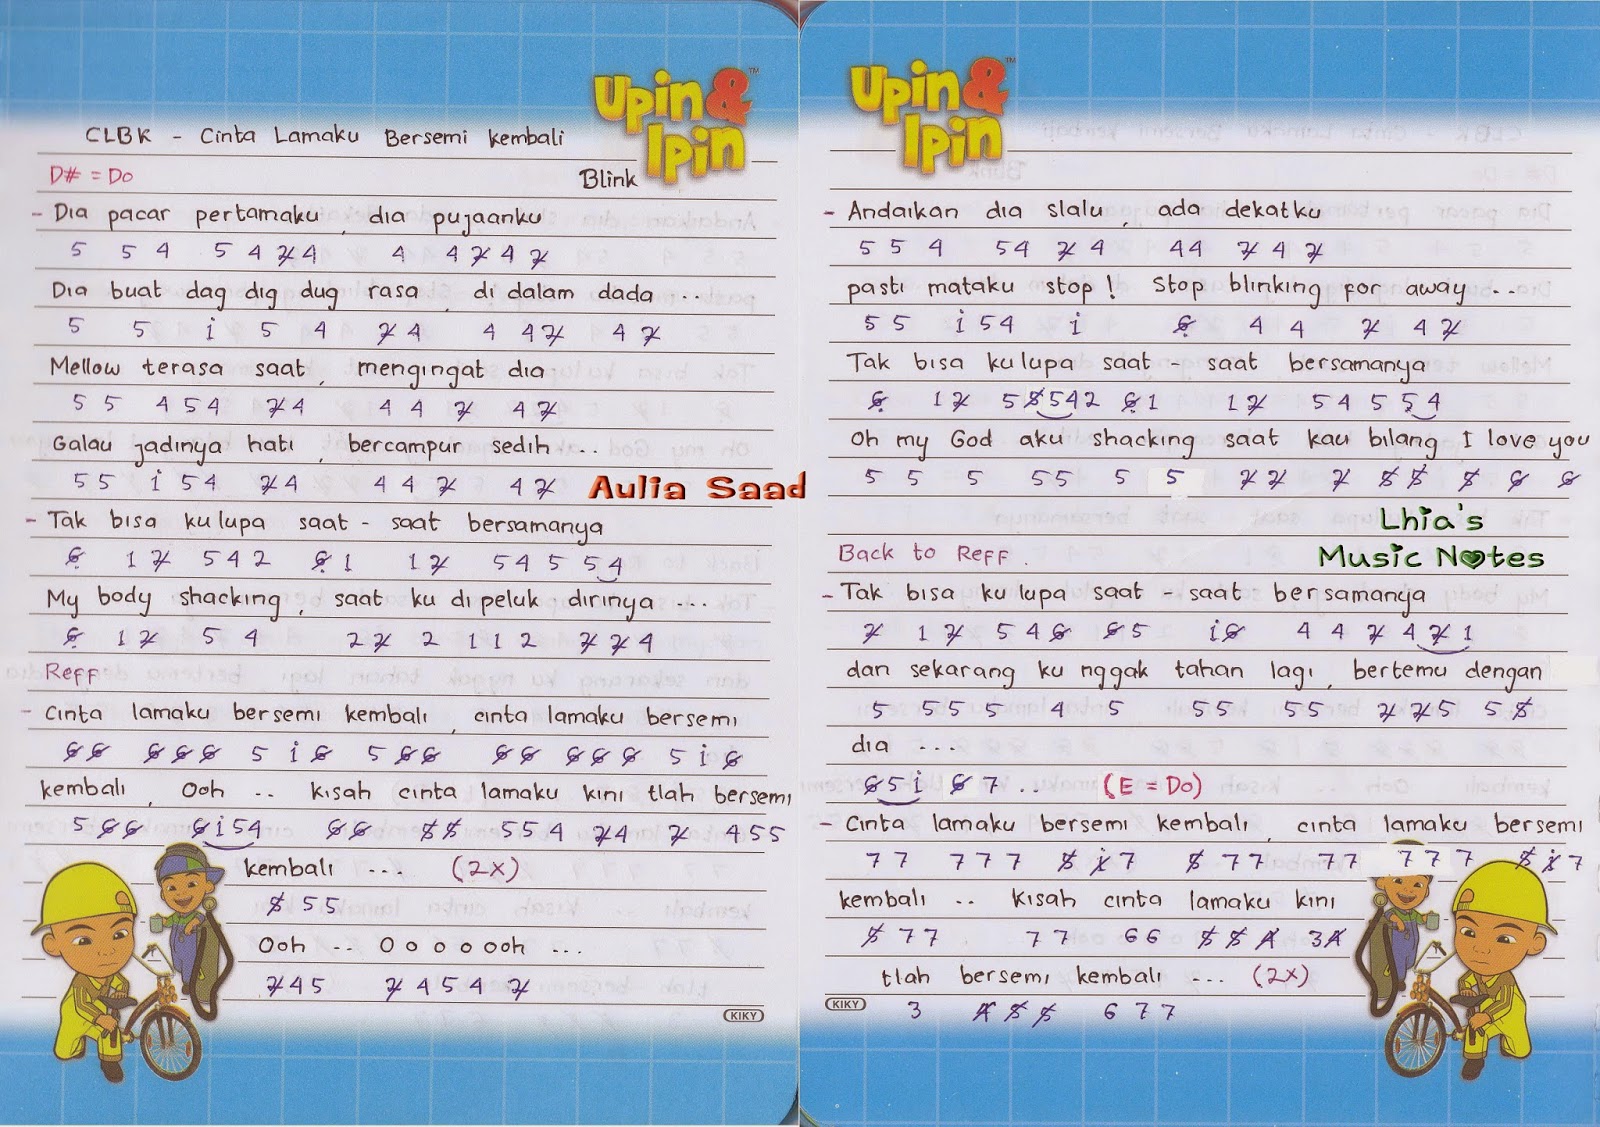 Upin &
Ipin
CLBK - Cinta Lamaku Bersemi Kembali
D# = Do
Blink
- Dia pacar pertamaku, dia pujaanku
5 5 4 5 4 2̸ 4 4 4 2̸ 4 2̸
Dia buat dag dig dug rasa, di dalam dada ...
5 5 i 5 4 2̸ 4 4 4 2̸ 4 2̸
Mellow terasa saat, mengingat dia
5 5 4 5 4 2̸ 4 4 4 2̸ 4 2̸
Galau jadinya hati, bercampur sedih ...
5 5 i 5 4 2̸ 4 4 4 2̸ 4 2̸
Aulia Saad
- Tak bisa ku lupa saat - saat bersamanya
6̸ 1 2̸ 5 4 2 6̸ 1 1 2̸ 5 4 5 5 4
My body shacking, saat ku di peluk dirinya ...
6̸ 1 2̸ 5 4 2 2̸ 2 1 1 2 2̸ 2̸ 4
Reff
- Cinta lamaku bersemi kembali, cinta lamaku bersemi
6̸ 6̸ 6̸ 6̸ 6̸ 5 i 6̸ 5 6̸ 6̸ 6̸ 6̸ 6̸ 6̸ 6̸ 5 i 6̸
kembali, Ooh .. kisah cinta lamaku kini tlah bersemi
5 6̸ 6̸ 6̸ i 5 4 6̸ 6̸ 5̸ 5̸ 5 5 4 2̸ 4 2̸ 4 5 5
kembali ... (2x)
5̸ 5 5
Ooh ... O o o o ooh ...
2̸ 4 5 2̸ 4 5 4 2̸
KIKY
Upin &
Ipin
- Andaikan dia slalu, ada dekatku
5 5 4 5 4 2̸ 4 4 4 2̸ 4 2̸
pasti mataku stop! Stop blinking for away ...
5 5 i 5 4 i 6̸ 4 4 2̸ 4 2̸
Tak bisa ku lupa saat - saat bersamanya
6̸ 1 2̸ 5 5̸ 5 4 2 6̸ 1 1 2̸ 5 4 5 5 4
Oh my God aku shacking saat kau bilang I love you
5 5 5 5 5 5 5 2̸ 2̸ 2̸ 5̸ 5̸ 5̸ 6̸ 6̸
Lhia's
Back to Reff.
Music Notes
- Tak bisa ku lupa saat - saat bersamanya
2̸ 1 2̸ 5 4 6̸ 6̸ 5 i 6̸ 4 4 2̸ 4 2̸ 1
dan sekarang ku nggak tahan lagi, bertemu dengan
5 5 5 5 4 5 5 5 5 5 2̸ 2̸ 5 5 5̸
dia ...
6̸ 5 i 6̸ 7 .. (E = Do)
- Cinta lamaku bersemi kembali, cinta lamaku bersemi
7 7 7 7 7 5̸ i̸ 7 5̸ 7 7 7 7 7 7 7 5̸ i̸ 7
kembali .. kisah cinta lamaku kini
5̸ 7 7 7 7 6 6 5̸ 5̸ 4̸ 3 4̸
tlah bersemi kembali ... (2x)
3 4̸ 5̸ 5̸ 6 7 7
KIKY